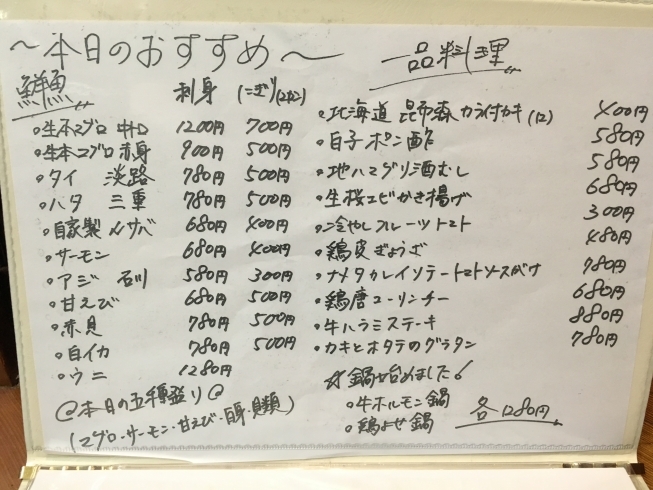 ～本日のおすすめ～
鮮魚 刺身 にぎり(2カン)
・生本マグロ 中トロ 1200円 700円
・生本マグロ 赤身 900円 500円
・タイ 淡路 780円 500円
・ハタ 三重 780円 500円
・自家製〆サバ 680円 400円
・サーモン 680円 400円
・アジ 石川 580円 300円
・甘えび 680円 500円
・赤貝 780円 500円
・白イカ 780円 500円
・ウニ 1280円
@本日の五種盛り@
(マグロ・サーモン・甘えび・白身・貝類)
一品料理
・北海道 昆布森カラ付カキ(1コ) 400円
・白子ポン酢 580円
・地ハマグリ酒むし 580円
・生桜エビかき揚げ 680円
・冷やしフルーツトマト 300円
・鶏皮ぎょうざ 480円
・ナメタカレイソテートマトソースがけ 780円
・鶏唐ユーリンチー 680円
・牛ハラミステーキ 880円
・カキとホタテのグラタン 780円
☆鍋が始めました!
・牛ホルモン鍋
・鶏よせ鍋 各1280円